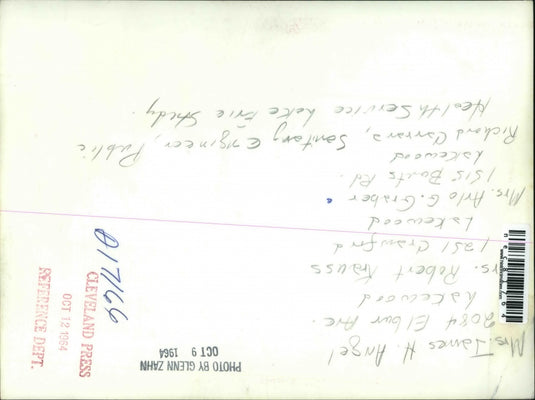 Mrs. James H. Angel
2084 Elbur Ave.
Lakewood
Mrs. Robert Krauss
1251 Crawford
Lakewood
Mrs. Arlo G. Graber
1515 Bunts Rd.
Lakewood
Sanitary Engineer, Public
Health Service Lake Erie Study.
PHOTO BY GLENN ZAHN
OCT 9 1964
D17166
CLEVELAND PRESS
OCT 12 1964
REFERENCE DEPT.